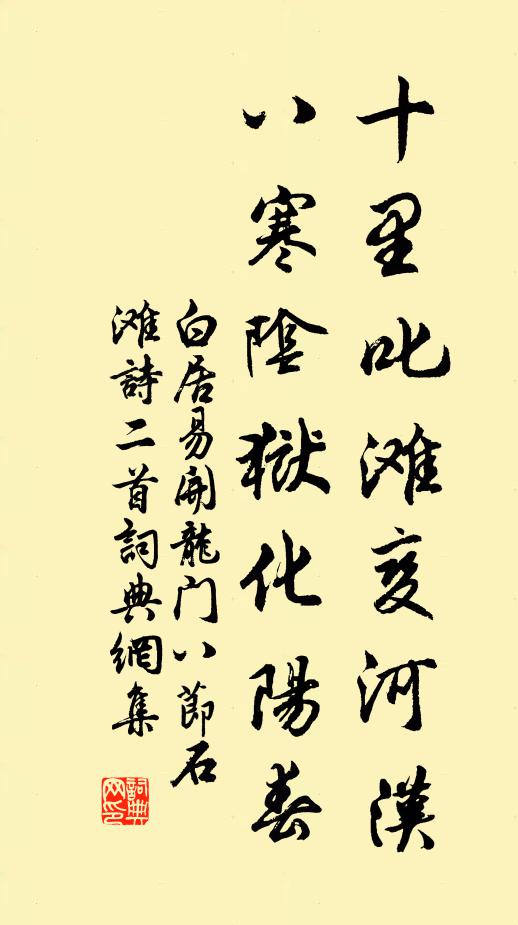 十里叱滩变河漢
八寒陰獄化陽春
白居易開龍门八節石
滩詩二首詞典網集
詞典网印